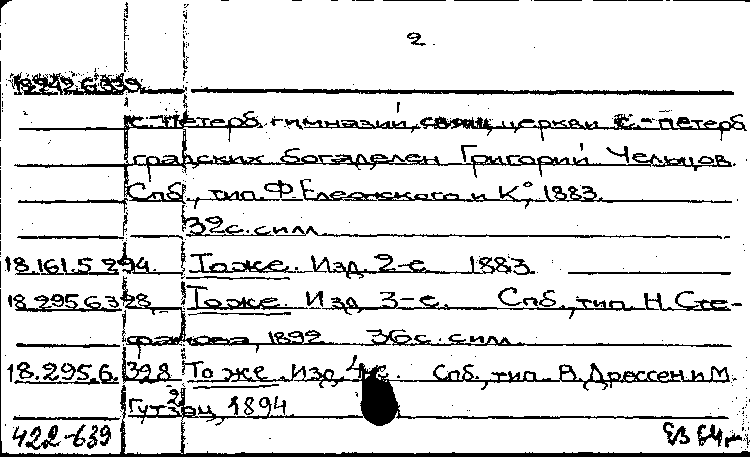 2
18.242.6.339
С.-Петерб. гимназий, свящ. церкви С.-Петерб
градских богаделен Григорий Чельцов.
Спб., тип. Ф. Елеонского и К°, 1883.
32 с. с илл.
18.161.5.294. То же. Изд. 2-е 1883
18.295.6.328, То же. Изд. 3-е. Спб., тип. Н. Сте-
фанова, 1892 36 с. с илл.
18.295.6.328 То же. Изд. 4-е. Спб., тип. А. Дрессен и М.
Гутзац, 1894.
422-639